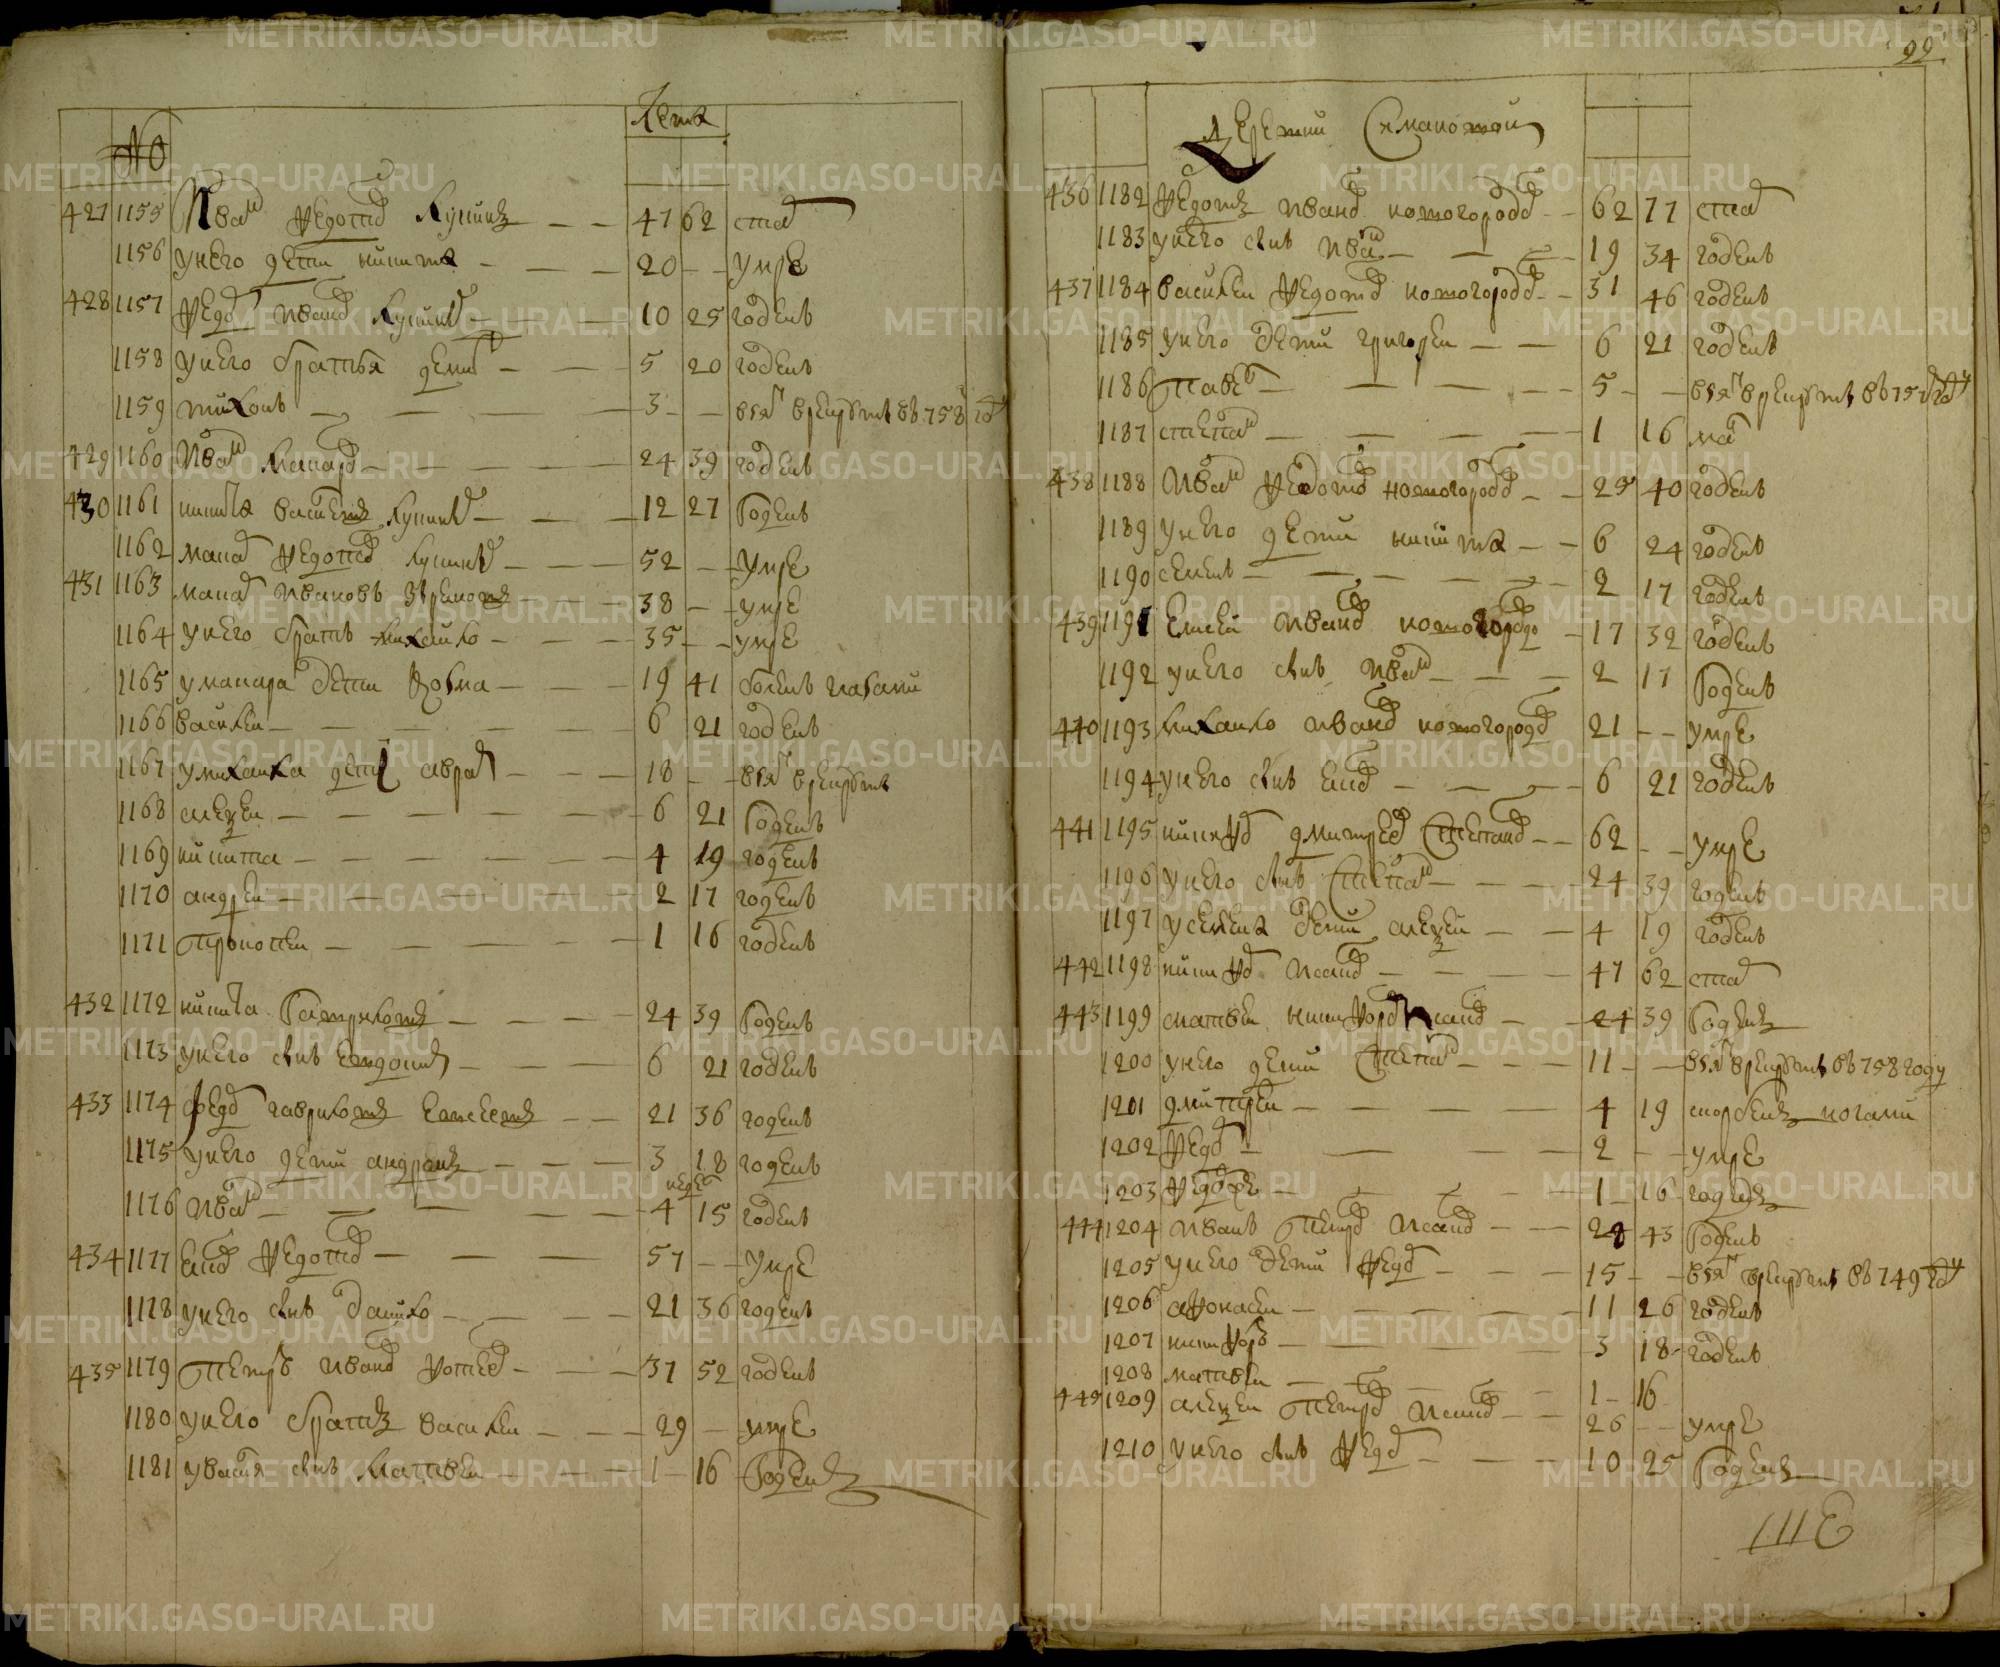 №
Лета
427 1155 Иван Федотов Кунинъ 47 62 стар
1156 у него дети никита 20 умре
428 1157 Федор Иванов Кунинъ 10 25 годенъ
1158 у него братья 5 20 годенъ
1159 тихонъ 3 взят в рекруты въ 758 году
429 1160 Иван Макаров 24 39 годенъ
430 1161 никита васильев Кунинъ 12 27 Годенъ
1162 макар Федотов Кунинъ 52 Умре
431 1163 макар Ивановъ 38 умре
1164 у него братъ михайло 35 умре
1165 у макара дети 19 41 боленъ ногами
1166 василей 6 21 годенъ
1167 у михайла дети аврам 18 взят в рекруты
1168 алексей 6 21 Годенъ
1169 никита 4 19 годенъ
1170 андрей 2 17 годенъ
1171 прокопей 1 16 годенъ
432 1172 никита Гаврилов 24 39 Годенъ
1173 у него сынъ евдоким 6 21 годенъ
433 1174 Федор гаврилов Елисеев 21 36 годенъ
1175 у него дети андреянъ 3 18 годенъ
1176 Иван 4 15 годенъ
434 1177 Федотов 57 Умре
1178 у него сынъ данило 21 36 годенъ
435 1179 петръ иванов 37 52 годенъ
1180 у него братъ василей 29 умре
1181 у василья сынъ матвей 1 16 Годенъ
22
Деревни Симановой
436 1182 Федотъ иванов новогородов 62 77 стар
1183 у него сынъ Иван 19 34 годенъ
437 1184 василей Федотов новогородов 31 46 годенъ
1185 у него дети григорей 6 21 годенъ
1186 павел 5 взят в рекруты въ 757 году
1187 степан 1 16 мал
438 1188 Иван Федотов новогородов 25 40 годенъ
1189 у него дети никита 6 24 годенъ
1190 семенъ 2 17 годенъ
439 1191 Елисей иванов новогородов 17 32 годенъ
1192 у него сынъ Иван 2 17 Годенъ
440 1193 михайло иванов новогородов 21 умре
1194 у него сынъ 6 21 годенъ
441 1195 никифор дмитреев Степанов 62 умре
1196 у него сынъ Степан 24 39 годенъ
1197 у семена дети алексей 4 19 годенъ
442 1198 никифор Исаков 47 62 стар
443 1199 матвей никифоров Исаков 24 39 Годенъ
1200 у него дети Степан 11 взят в рекруты въ 758 году
1201 дмитрей 4 19 скорбенъ ногами
1202 Федор 2 умре
1203 1 16 годенъ
444 1204 Иванъ петров Исаков 28 43 Годенъ
1205 у него дети Федор 15 взят в рекруты въ 749 году
1206 афонасей 11 26 годенъ
1207 никифоръ 3 18 годенъ
1208 матвей 1 16
445 1209 алексей петров Исаков 26 умре
1210 у него сынъ Федор 10 25 Годенъ